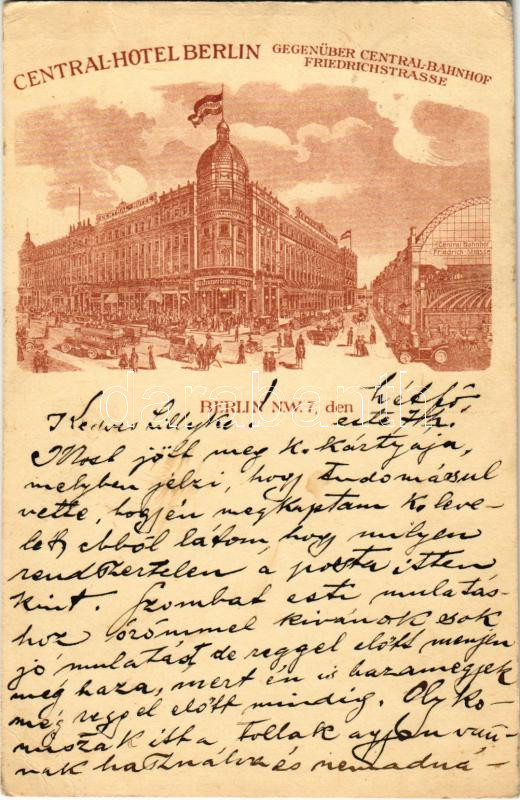 CENTRAL-HOTEL BERLIN
GEGENÜBER CENTRAL-BAHNHOF
FRIEDRICHSTRASSE
CENTRAL-HOTEL
Central Bahnhof
Friedrich Strasse
darabanth
BERLIN N.W.7, den
hétfő
este 7h.
Kedves Lillyke!
Most jött meg k. kártyája,
melyben jelzi, hogy tudomásul
vette, hogy én megkaptam k. leve-
let, ebből látom, hogy milyen
rendszertelen a posta itten
kint. Szombat esti mulatás-
hoz örömmel kivánok sok
jó mulatást, de reggel előtt menjen
még haza, mert én is hazamegyek
még reggel előtt mindig. Oly ko-
miszak itt a tollak, agyon van-
nak használva és nem adná-